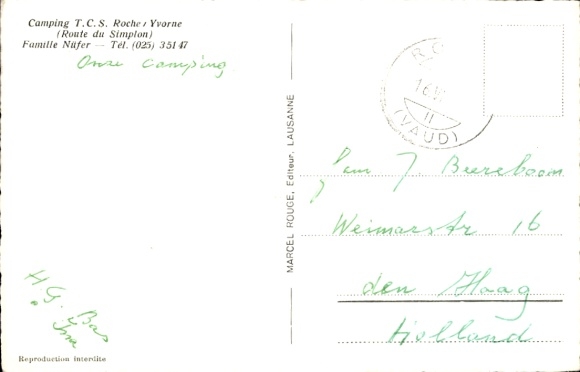 Camping T.C.S. Roche/Yvorne
(Route du Simplon)
Famille Nüfer — Tél. (025) 3 51 47
Onze Camping
H. G.
Bas
MARCEL ROUGE, Editeur, LAUSANNE
16
II
(VAUD)
Fam J Beereboom
Weimarstr 16
den Haag
Holland
Reproduction interdite